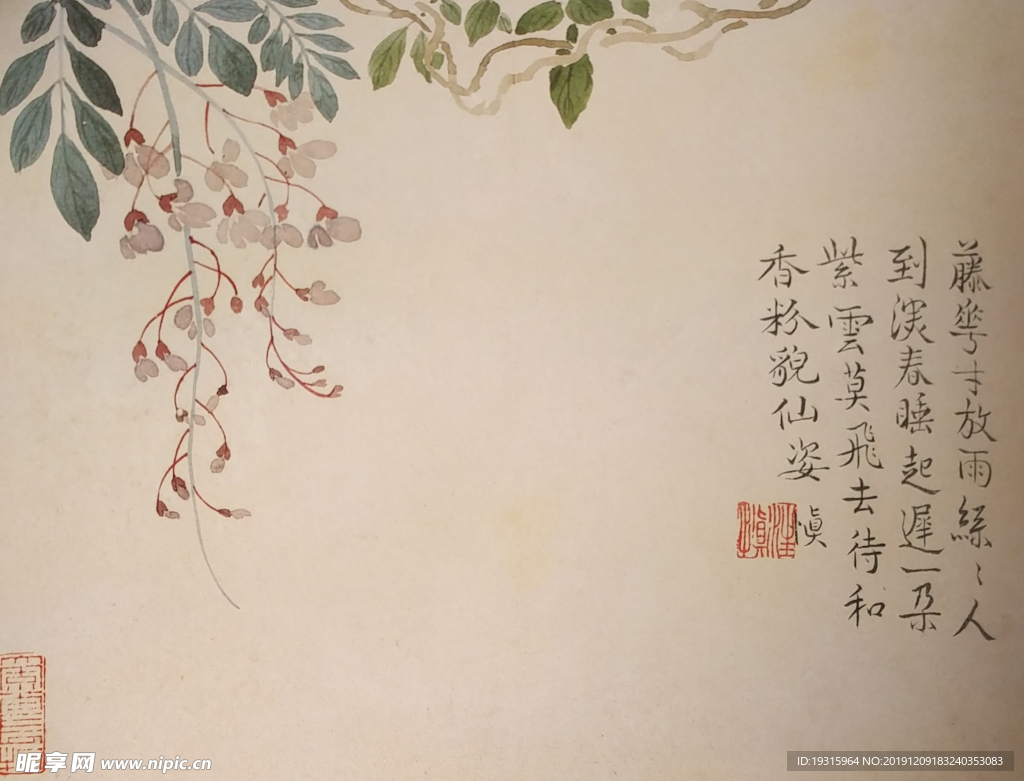 藤華才放雨絲〻人
到淡春睡起遲一朵
紫雲莫飛去待和
香粉貌仙姿
慎
昵享网 www.nipic.cn
ID:19315964 NO:20191209183240353083